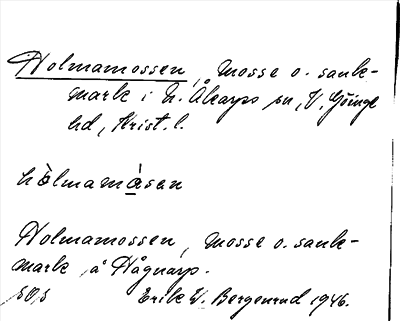 Holmamossen, mosse o. sank-
mark i N. Åkarps sn, V. Göinge
hd, Krist. l.
hòlmamåsen
Holmamossen, mosse o. sank-
mark å Hågnarp.
Erik W. Bergenrud 1946.